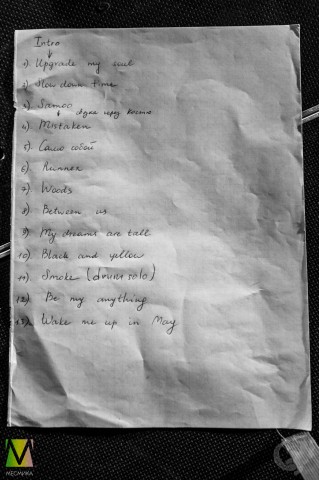 Intro
1) Upgrade my soul
2) Slow down time
3) Samoo
4) Mistaken
5) Само собой
6) Runner
7) Woods
8) Between us
9) My dreams are tall
10) Black and yellow
11) Smoke (drum solo)
12) Be my anything
13) Wake me up in May
МЕОМИКА